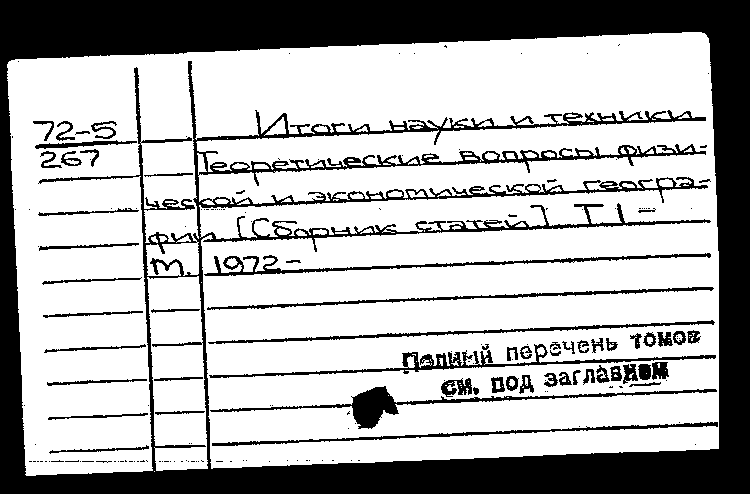 72-5
267
Итоги науки и техники
Теоретические вопросы физи=
ческой и экономической геогра=
фии [Сборник статей] Т 1 -
М. 1972-
Полный перечень томов
см. под заглавием